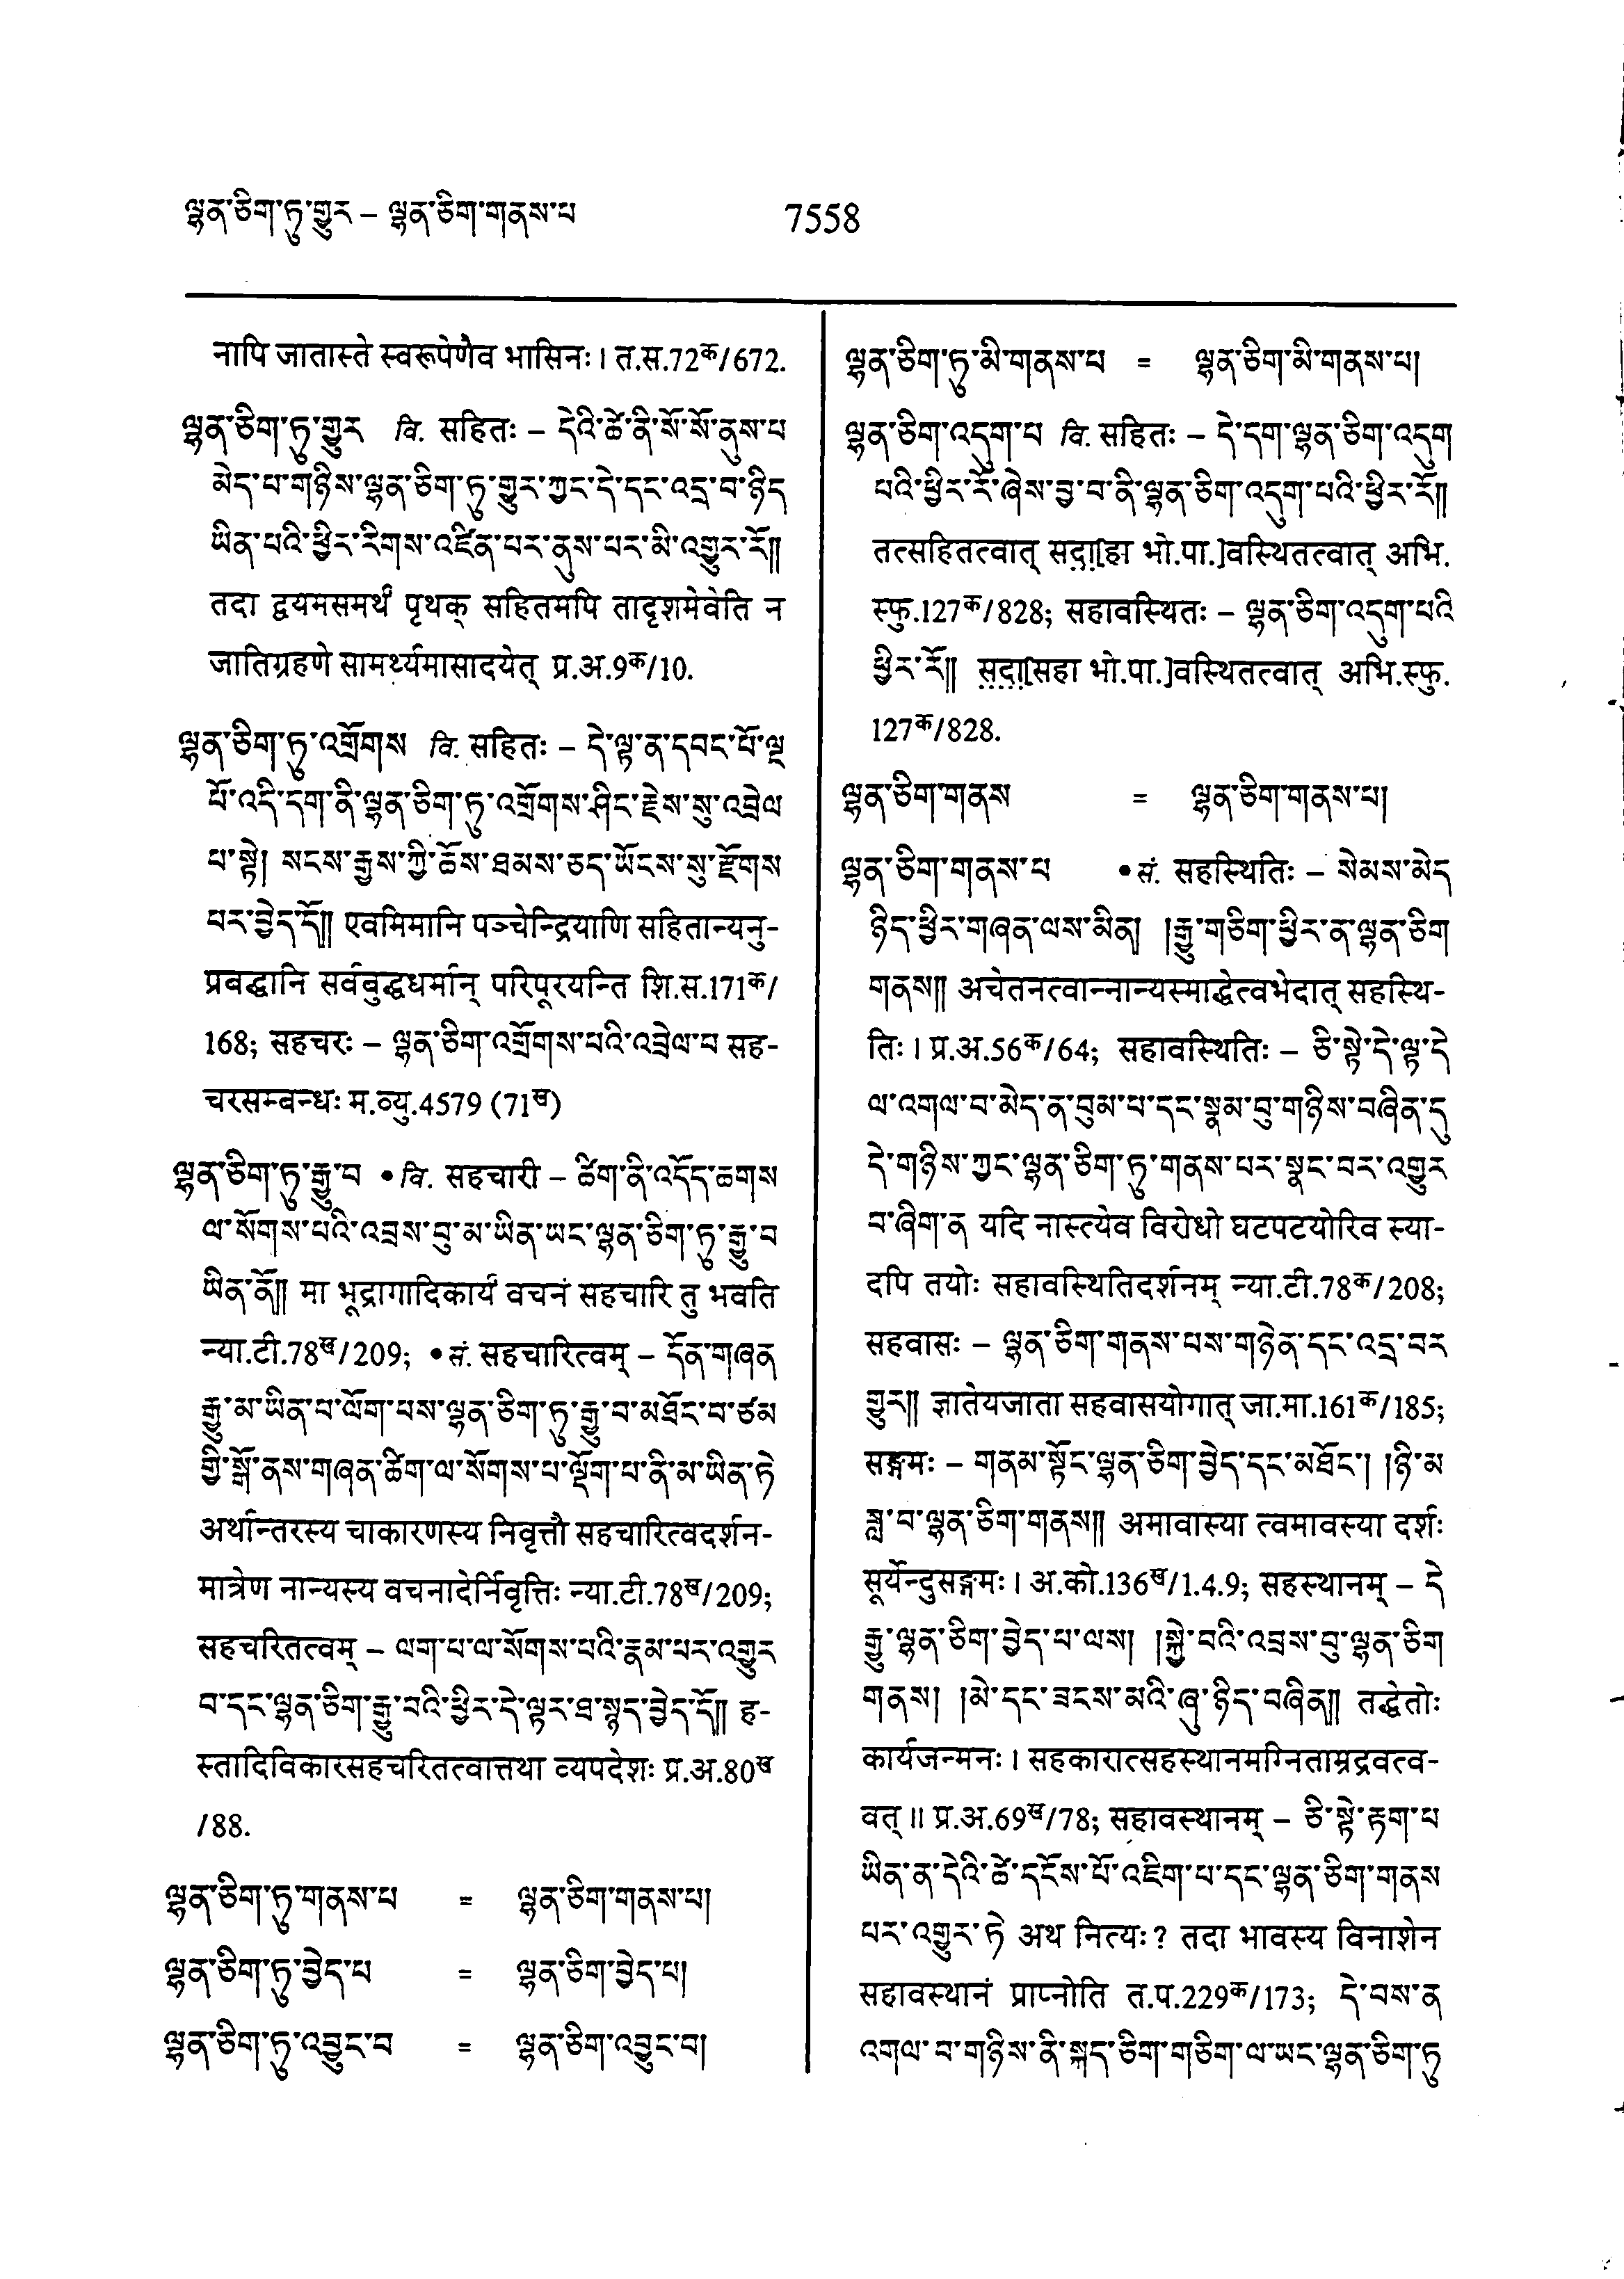 ལྷན་ཅིག་ཏུ་གྱུར – ལྷན་ཅིག་གནས་པ
7558
नापि जातास्ते स्वरूपेणैव भासिनः। त.स.72क/672.
ལྷན་ཅིག་ཏུ་གྱུར वि. सहितः – དེའི་ཚེ་ནི་སོ་སོ་ནུས་པ
མེད་པ་གཉིས་ལྷན་ཅིག་ཏུ་གྱུར་ཀྱང་དེ་དང་འདྲ་བ་ཉིད
ཡིན་པའི་ཕྱིར་རིགས་འཛིན་པར་ནུས་པར་མི་འགྱུར་རོ༎
तदा द्वयमसमर्थं पृथक् सहितमपि तादृशमेवेति न
जातिग्रहणे सामर्थ्यमासादयेत् प्र.अ.9क/10.
ལྷན་ཅིག་ཏུ་འགྲོགས वि. सहितः – དེ་ལྟ་ན་དབང་པོ་ལྔ
པོ་འདི་དག་ནི་ལྷན་ཅིག་ཏུ་འགྲོགས་ཤིང་རྗེས་སུ་འབྲེལ
པ་སྟེ། སངས་རྒྱས་ཀྱི་ཆོས་ཐམས་ཅད་ཡོངས་སུ་རྫོགས
པར་བྱེད་དོ༎ एवमिमानि पञ्चेन्द्रियाणि सहितान्यनु-
प्रबद्धानि सर्वबुद्धधर्मान् परिपूरयन्ति शि.स.171क/
168; सहचरः – ལྷན་ཅིག་འགྲོགས་པའི་འབྲེལ་པ सह-
चरसम्बन्धः म.व्यु.4579 (71ख)
ལྷན་ཅིག་ཏུ་རྒྱུ་བ • वि. सहचारी – ཚིག་ནི་འདོད་ཆགས
ལ་སོགས་པའི་འབྲས་བུ་མ་ཡིན་ཡང་ལྷན་ཅིག་ཏུ་རྒྱུ་བ
ཡིན་ནོ༎ मा भूद्रागादिकार्यं वचनं सहचारि तु भवति
न्या.टी.78ख/209; • सं. सहचारित्वम् – དོན་གཞན
རྒྱུ་མ་ཡིན་པ་ལོག་པས་ལྷན་ཅིག་ཏུ་རྒྱུ་བ་མཐོང་བ་ཙམ
གྱི་སྒོ་ནས་གཞན་ཚིག་ལ་སོགས་པ་ལྡོག་པ་ནི་མ་ཡིན་ཏེ
अर्थान्तरस्य चाकारणस्य निवृत्तौ सहचारित्वदर्शन-
मात्रेण नान्यस्य वचनादेर्निवृत्तिः न्या.टी.78ख/209;
सहचरितत्वम् – ལག་པ་ལ་སོགས་པའི་རྣམ་པར་འགྱུར
བ་དང་ལྷན་ཅིག་རྒྱུ་བའི་ཕྱིར་དེ་ལྟར་ཐ་སྙད་བྱེད་དོ༎ ह-
स्तादिविकारसहचरितत्वात्तथा व्यपदेशः प्र.अ.80ख
/88.
ལྷན་ཅིག་ཏུ་གནས་པ = ལྷན་ཅིག་གནས་པ།
ལྷན་ཅིག་ཏུ་བྱེད་པ = ལྷན་ཅིག་བྱེད་པ།
ལྷན་ཅིག་ཏུ་འབྱུང་བ = ལྷན་ཅིག་འབྱུང་བ།
ལྷན་ཅིག་ཏུ་མི་གནས་པ = ལྷན་ཅིག་མི་གནས་པ།
ལྷན་ཅིག་འདུག་པ वि. सहितः – དེ་དག་ལྷན་ཅིག་འདུག
པའི་ཕྱིར་རོ་ཞེས་བྱ་བ་ནི་ལྷན་ཅིག་འདུག་པའི་ཕྱིར་རོ༎
तत्सहितत्वात् सदा[हा भो.पा.]वस्थितत्वात् अभि.
स्फु.127क/828; सहावस्थितः – ལྷན་ཅིག་འདུག་པའི
ཕྱིར་རོ༎ सदा[सहा भो.पा.]वस्थितत्वात् अभि.स्फु.
127क/828.
ལྷན་ཅིག་གནས = ལྷན་ཅིག་གནས་པ།
ལྷན་ཅིག་གནས་པ • सं. सहस्थितिः – སེམས་མེད
ཉིད་ཕྱིར་གཞན་ལས་མིན། །རྒྱུ་གཅིག་ཕྱིར་ན་ལྷན་ཅིག
གནས༎ अचेतनत्वान्नान्यस्माद्धेत्वभेदात् सहस्थि-
तिः। प्र.अ.56क/64; सहावस्थितिः – ཅི་སྟེ་དེ་ལྟ་དེ
ལ་འགལ་བ་མེད་ན་བུམ་པ་དང་སྣམ་བུ་གཉིས་བཞིན་དུ
དེ་གཉིས་ཀྱང་ལྷན་ཅིག་ཏུ་གནས་པར་སྣང་བར་འགྱུར
བ་ཞིག་ན यदि नास्त्येव विरोधो घटपटयोरिव स्या-
दपि तयोः सहावस्थितिदर्शनम् न्या.टी.78क/208;
सहवासः – ལྷན་ཅིག་གནས་པས་གཉེན་དང་འདྲ་བར
གྱུར༎ ज्ञातेयजाता सहवासयोगात् जा.मा.161क/185;
सङ्गमः – གནམ་སྟོང་ལྷན་ཅིག་བྱེད་དང་མཐོང་། །ཉི་མ
ཟླ་བ་ལྷན་ཅིག་གནས༎ अमावास्या त्वमावस्या दर्शः
सूर्येन्दुसङ्गमः। अ.को.136ख/1.4.9; सहस्थानम् – དེ
རྒྱུ་ལྷན་ཅིག་བྱེད་པ་ལས། །སྐྱེ་བའི་འབྲས་བུ་ལྷན་ཅིག
གནས། །མེ་དང་ཟངས་མའི་ཞུ་ཉིད་བཞིན༎ तद्धेतोः
कार्यजन्मनः। सहकारात्सहस्थानमग्निताम्रद्रवत्व-
वत्॥ प्र.अ.69ख/78; सहावस्थानम् – ཅི་སྟེ་རྟག་པ
ཡིན་ན་དེའི་ཚེ་དངོས་པོ་འཇིག་པ་དང་ལྷན་ཅིག་གནས
པར་འགྱུར་ཏེ अथ नित्यः? तदा भावस्य विनाशेन
सहावस्थानं प्राप्नोति त.प.229क/173; དེ་བས་ན
འགལ་བ་གཉིས་ནི་སྐད་ཅིག་གཅིག་ལ་ཡང་ལྷན་ཅིག་ཏུ